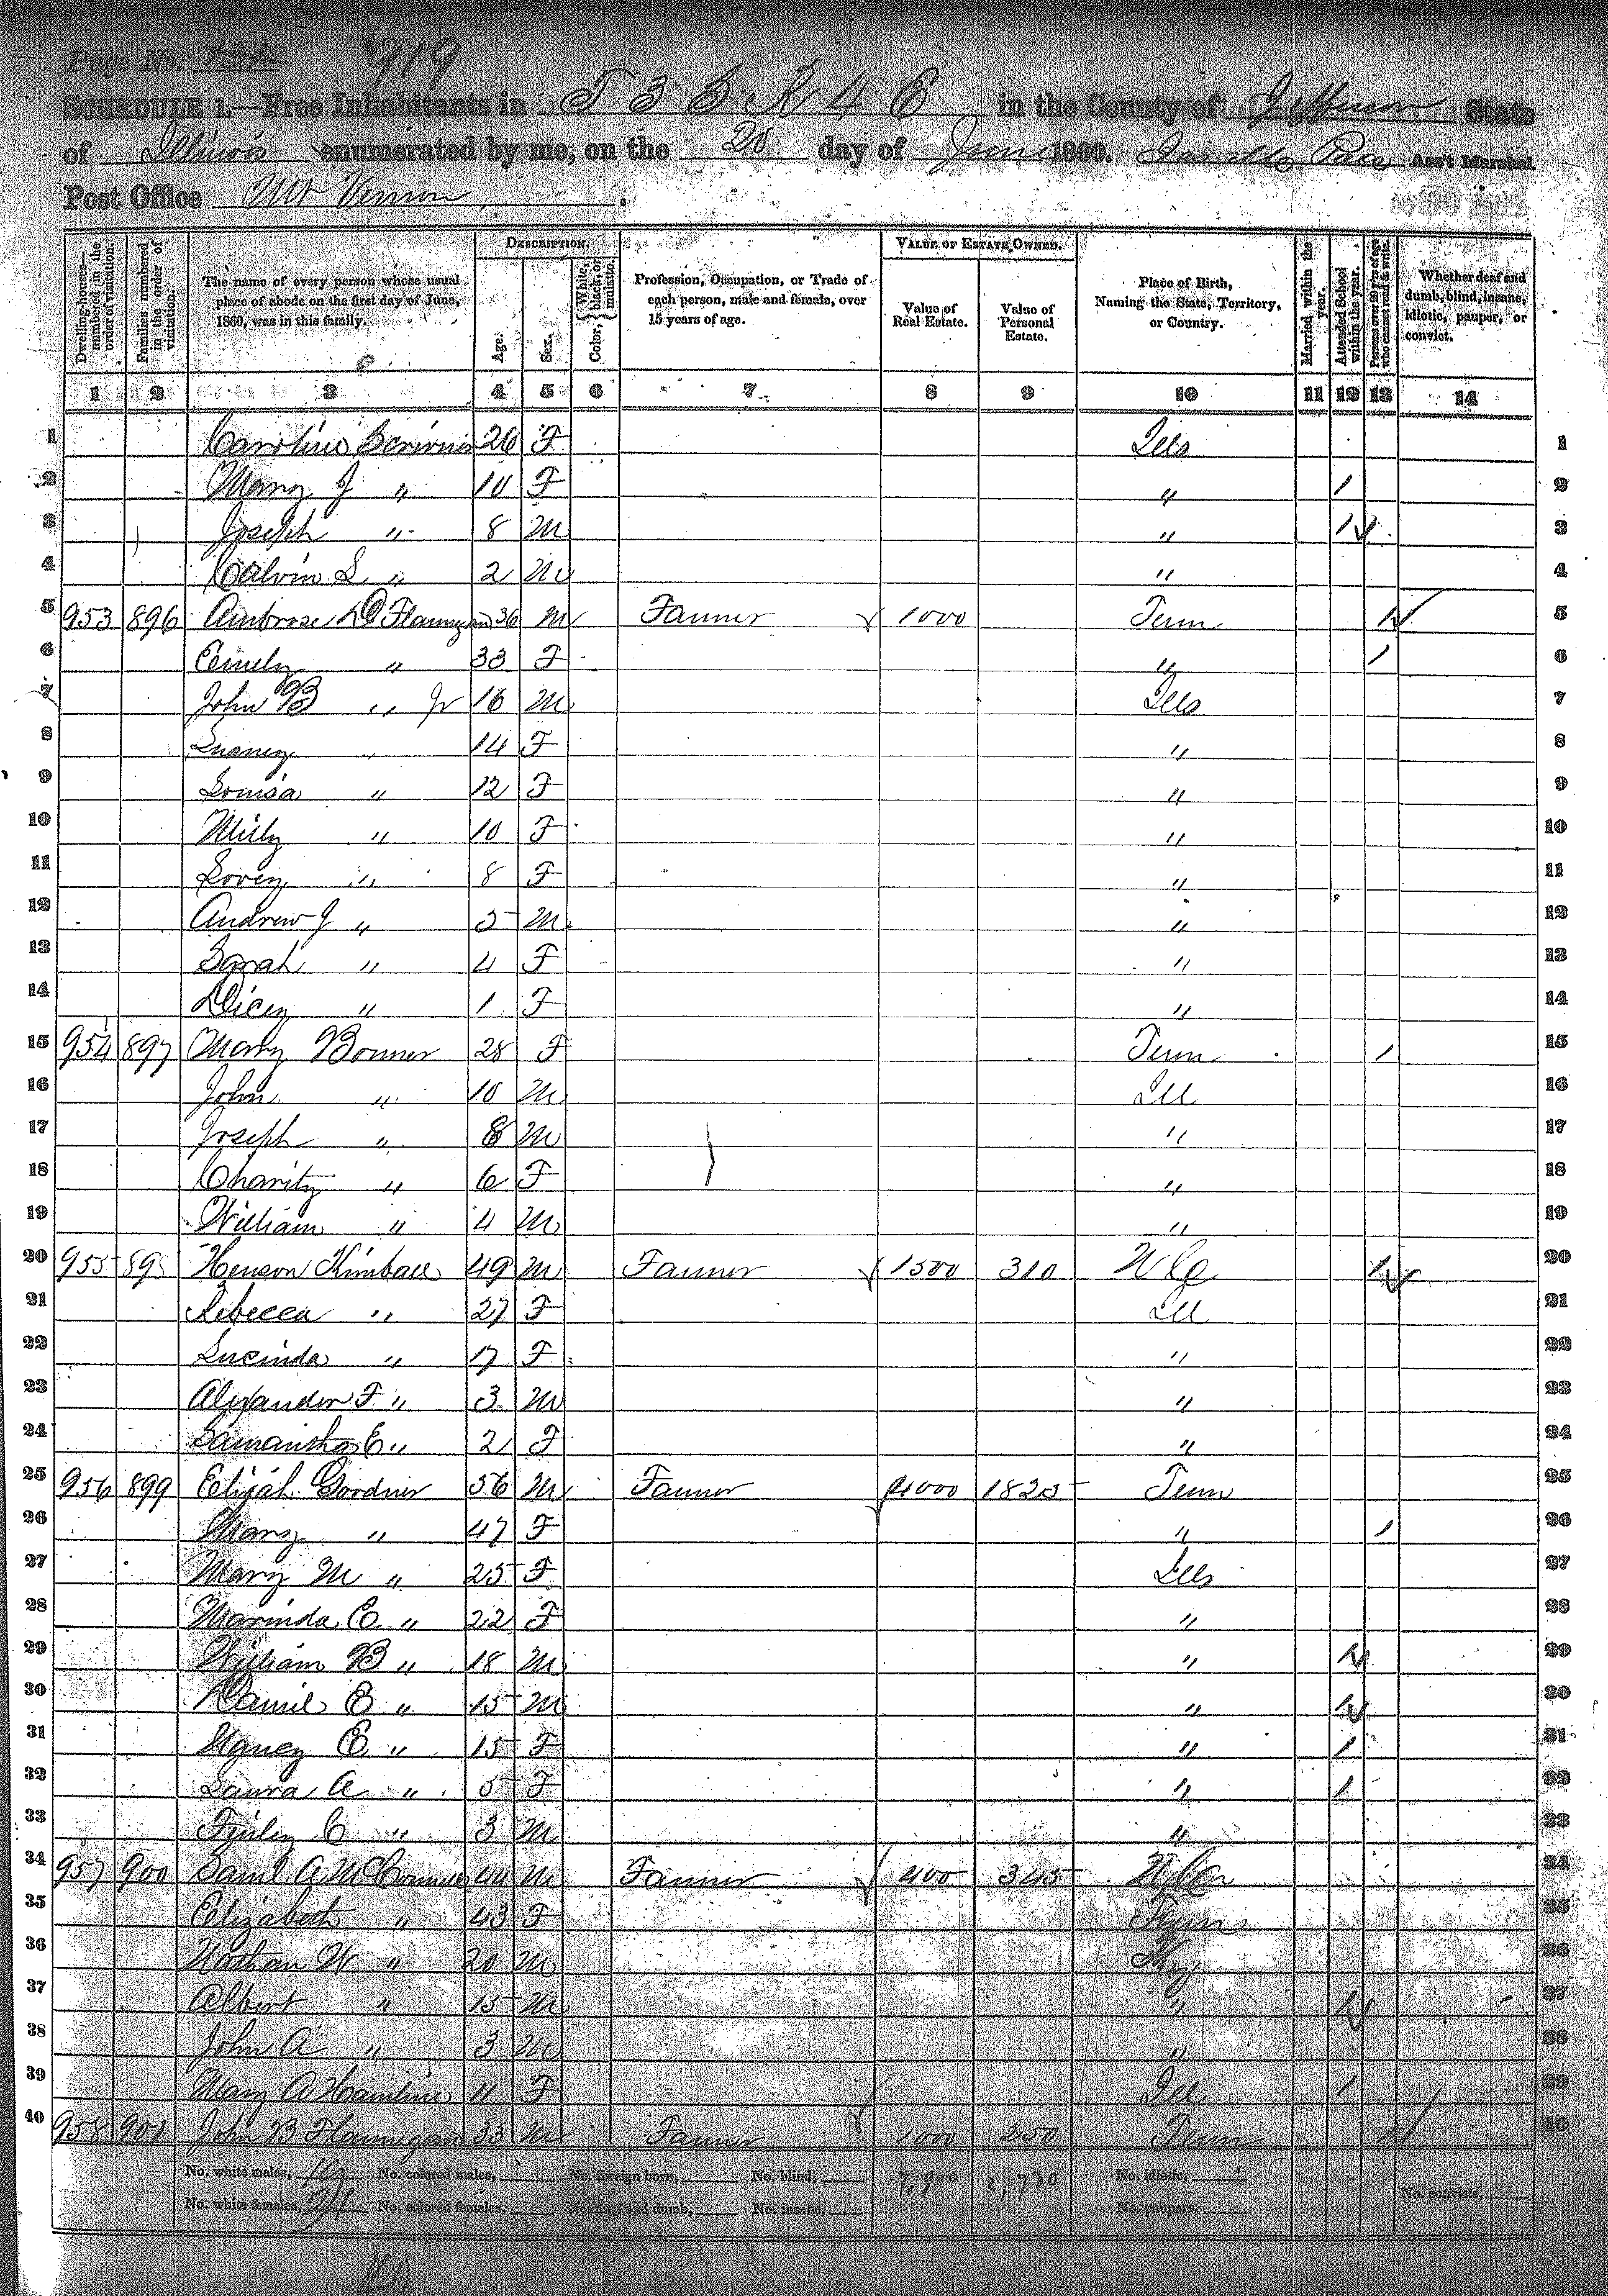 Page No. 919
SCHEDULE 1.—Free Inhabitants in T 3 S R 4 E in the County of Jefferson State
of Illinois enumerated by me, on the 20 day of June 1860. Pace Ass't Marshal.
Post Office Mt Vernon.
Dwelling-houses—numbered in the order of visitation.
Families numbered in the order of visitation.
The name of every person whose usual place of abode on the first day of June, 1860, was in this family.
DESCRIPTION.
Age.
Sex.
Color, {White, black, or mulatto.
Profession, Occupation, or Trade of each person, male and female, over 15 years of age.
VALUE OF ESTATE OWNED.
Value of Real Estate.
Value of Personal Estate.
Place of Birth, Naming the State, Territory, or Country.
Married within the year.
Attended School within the year.
Persons over 20 y'rs of age who cannot read & write.
Whether deaf and dumb, blind, insane, idiotic, pauper, or convict.
1 2 3 4 5 6 7 8 9 10 11 12 13 14
1 Caroline Scrivner 26 F Ills 1
2 Mary J " 10 F " 1 2
3 Joseph " 8 M " 1 3
4 Calvin S " 2 M " 4
5 953 896 Ambrose D Flannigan 36 M Farmer 1000 Tenn 1 5
6 Emily " 33 F " 1 6
7 John B " Jr 16 M Ills 7
8 " 14 F " 8
9 Louisa " 12 F " 9
10 Milly " 10 F " 10
11 Lovey " 8 F " 11
12 Andrew J " 5 M " 12
13 Sarah " 4 F " 13
14 Dicey " 1 F " 14
15 954 897 Mary Bonner 28 F Tenn 1 15
16 John " 10 M Ill 16
17 Joseph " 8 M " 17
18 Charity " 6 F " 18
19 William " 4 M " 19
20 955 898 Henson Kimball 49 M Farmer 1500 310 N Ca 1 20
21 Rebecca " 27 F Ill 21
22 Lucinda " 17 F " 22
23 Alexander F " 3 M " 23
24 Samantha E " 2 F " 24
25 956 899 Elijah Gordner 56 M Farmer 4000 1825 Tenn 25
26 Mary " 47 F " 1 26
27 Mary M " 25 F Ills 27
28 Marinda E " 22 F " 28
29 William B " 18 M " 1 29
30 Daniel E " 15 M " 1 30
31 Nancy E " 15 F " 1 31
32 Laura A " 5 F " 1 32
33 Finley C " 3 M " 33
34 957 900 Saml A McConnell 44 M Farmer 400 345 N Ca 34
35 Elizabeth " 43 F Tenn 35
36 Nathan W " 20 M Ky 36
37 Albert " 15 M " 1 37
38 John A " 3 M " 38
39 Mary A Hamline 11 F Ill 1 39
40 958 901 John B Flannigan 33 M Farmer 1000 250 Tenn 1 40
No. white males, 19 No. colored males, No. foreign born, No. blind, 7,900 2,730 No. idiotic,
No. white females, 21 No. colored females, No. deaf and dumb, No. insane, No. paupers, No. convicts,